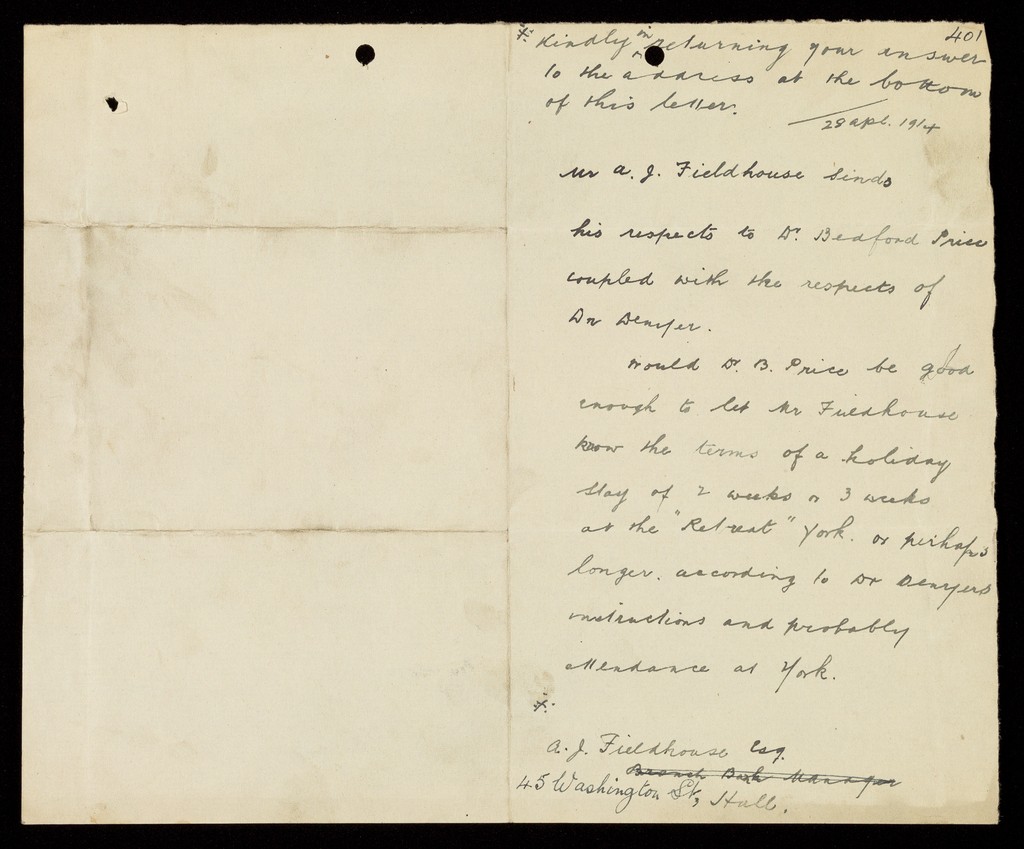 401
*. Kindly in returning your answer
to the address at the bottom
of this letter.
28 apl. 1914
Mr A. J. Fieldhouse sends
his respects to Dr. Bedford Price
coupled with the respects of
Dr Denyer.
Would Dr. B. Price be good
enough to let Mr Fieldhouse
know the terms of a holiday
stay of 2 weeks or 3 weeks
at the "Retreat" York. or perhaps
longer. according to Dr Denyers
instructions and probably
attendance at York.
*.
A. J. Fieldhouse Esq.
Branch Bank Manager
45 Washington St, Hull.